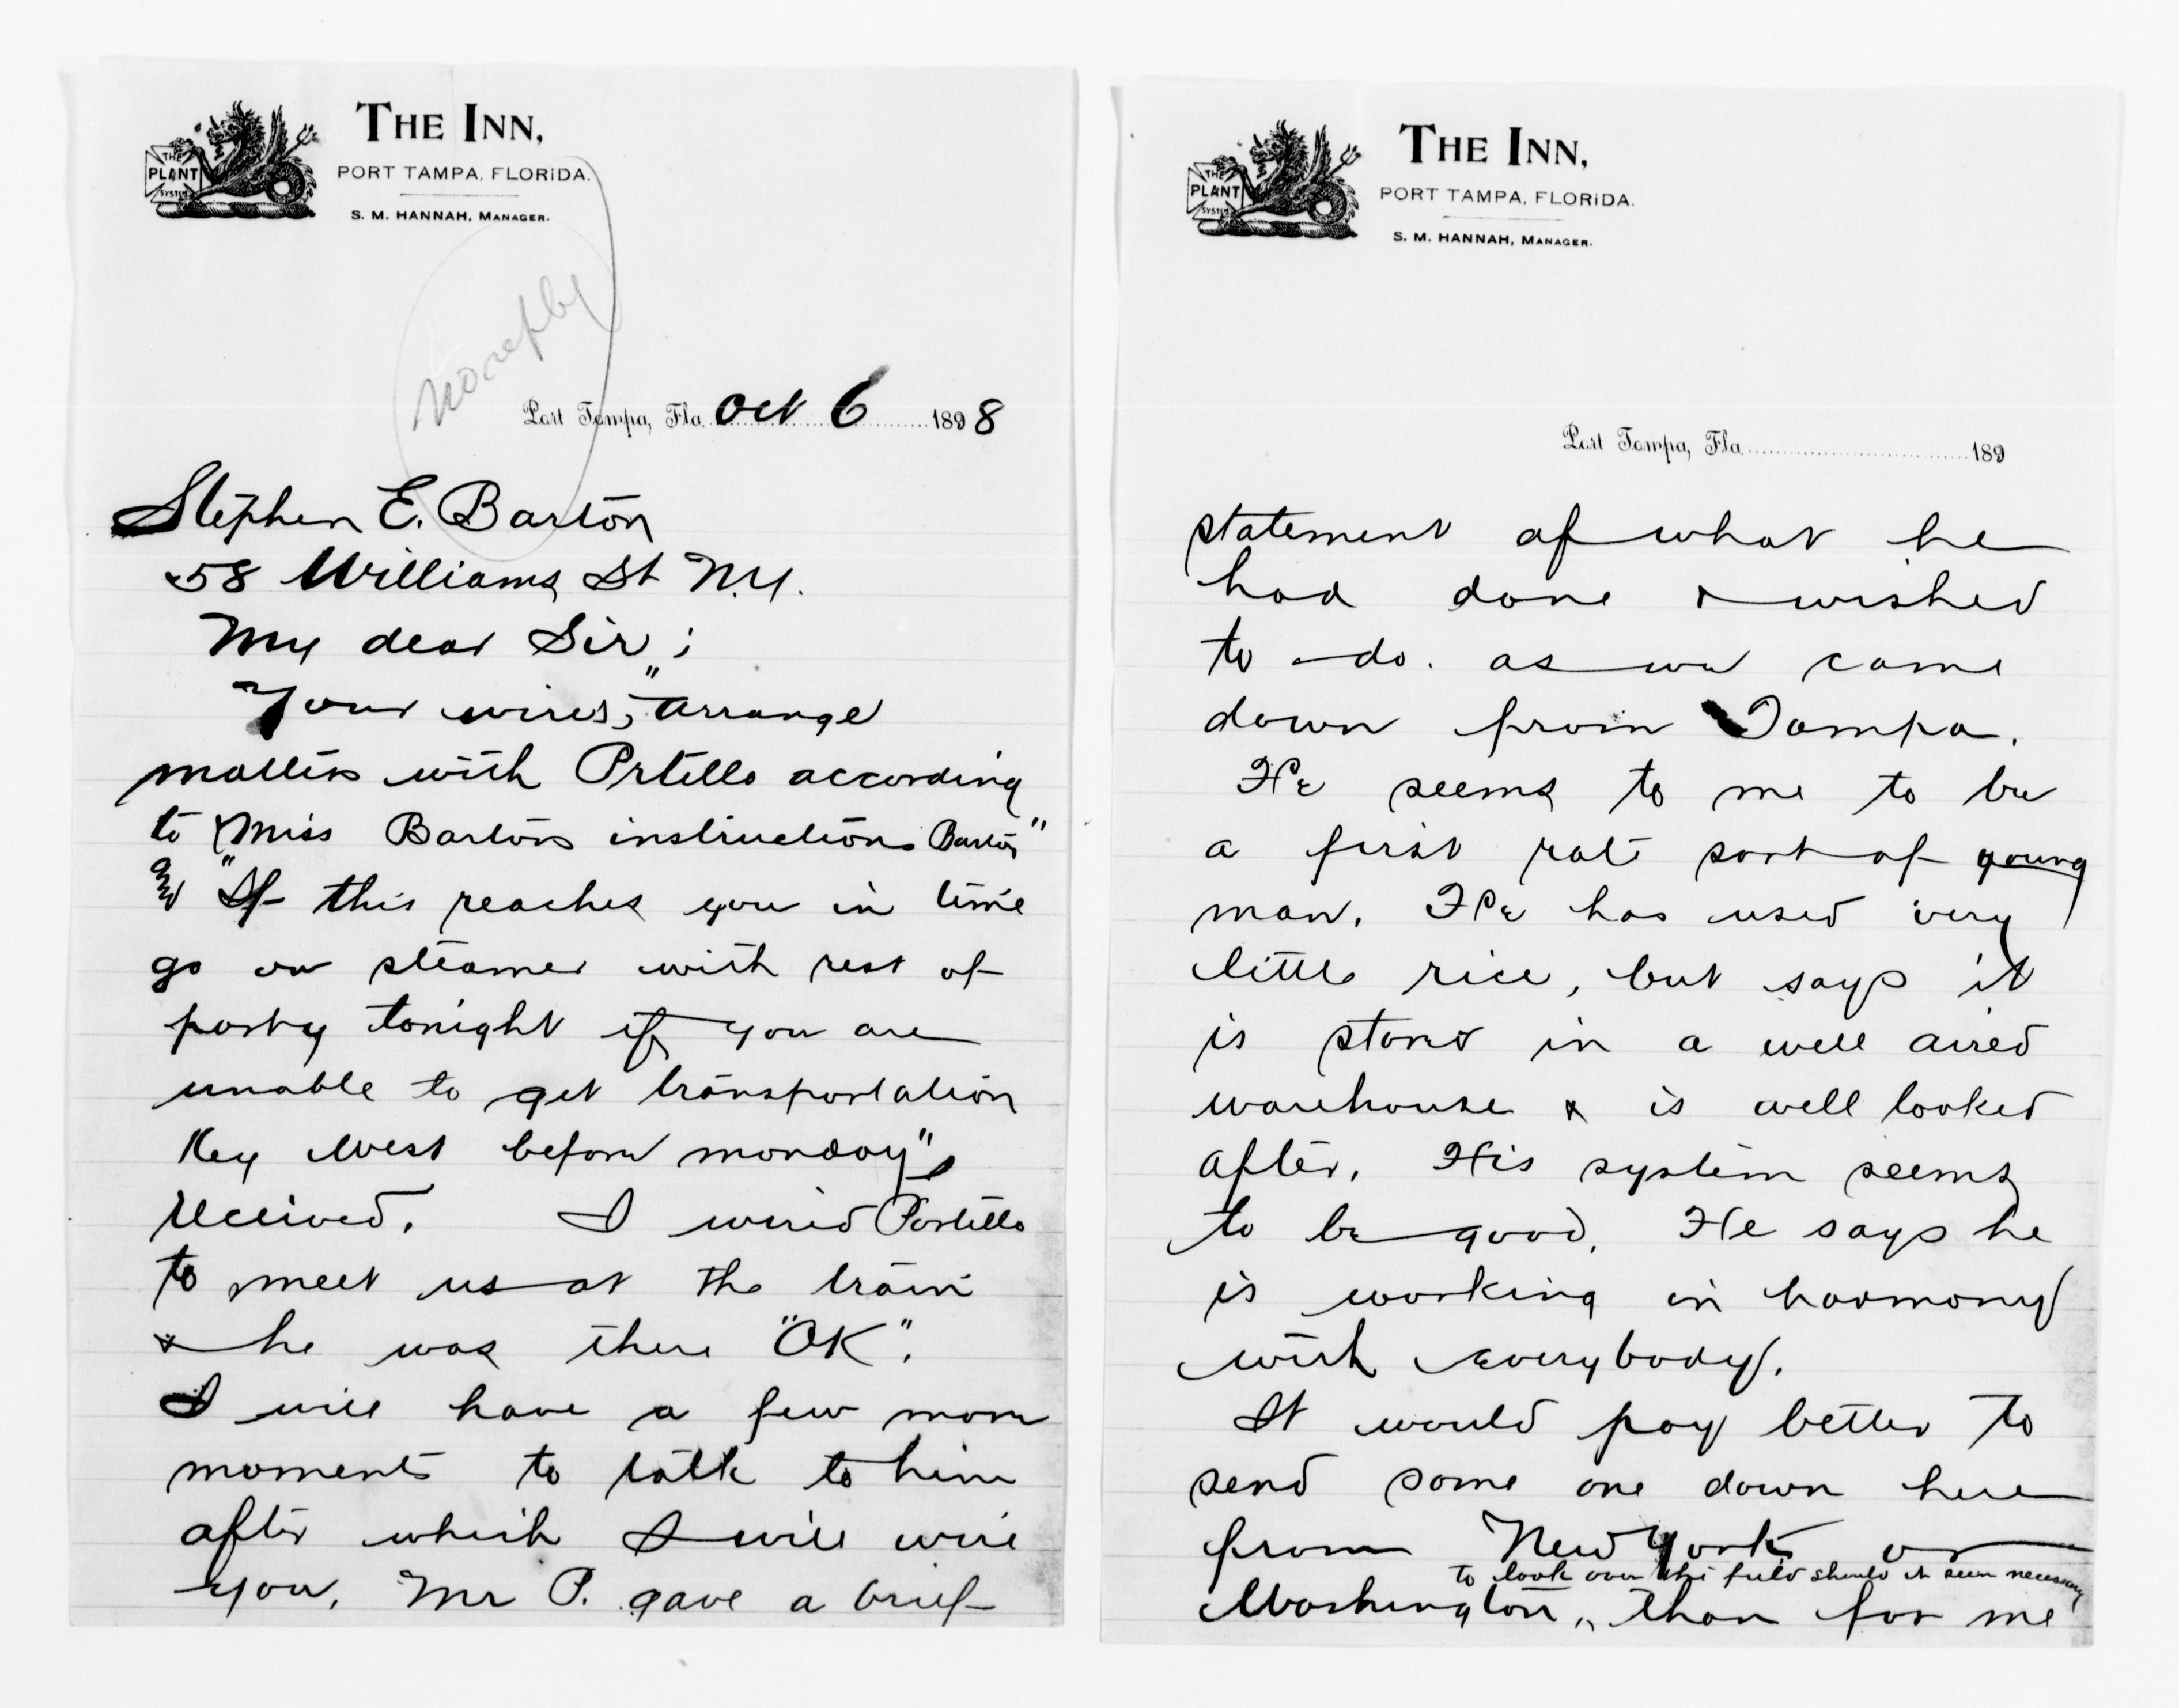 THE INN,
PORT TAMPA, FLORIDA.
S. M. HANNAH, MANAGER.
THE
PLANT
SYSTEM
No reply
Port Tampa, Fla. Oct 6 1898
Stephen E. Barton
58 Williams St N.Y.
My dear Sir;
Your wires, "Arrange
matters with Prtillo according
to Miss Bartons instructions Barton"
and "If this reaches you in time
go on steamer with rest of
party tonight if you are
unable to get transportation
Key West before monday",
received. I wired Portillo
to meet us at the train
& he was there "OK".
I will have a few more
moments to talk to him
after which I will wire
you, Mr P. gave a brief
THE INN,
PORT TAMPA, FLORIDA.
S. M. HANNAH, MANAGER.
THE
PLANT
SYSTEM
Port Tampa, Fla. 189
statement of what he
had done & wished
to do. as we came
down from Tampa.
He seems to me to be
a first rate sort of young
man. He has used very
little rice, but says it
is stored in a well aired
warehouse & is well looked
after. His system seems
to be good. He says he
is working in harmony
with everybody.
It would pay better to
send some one down here
from New York or
to look over the field should it seem necessary
Washington, than for me